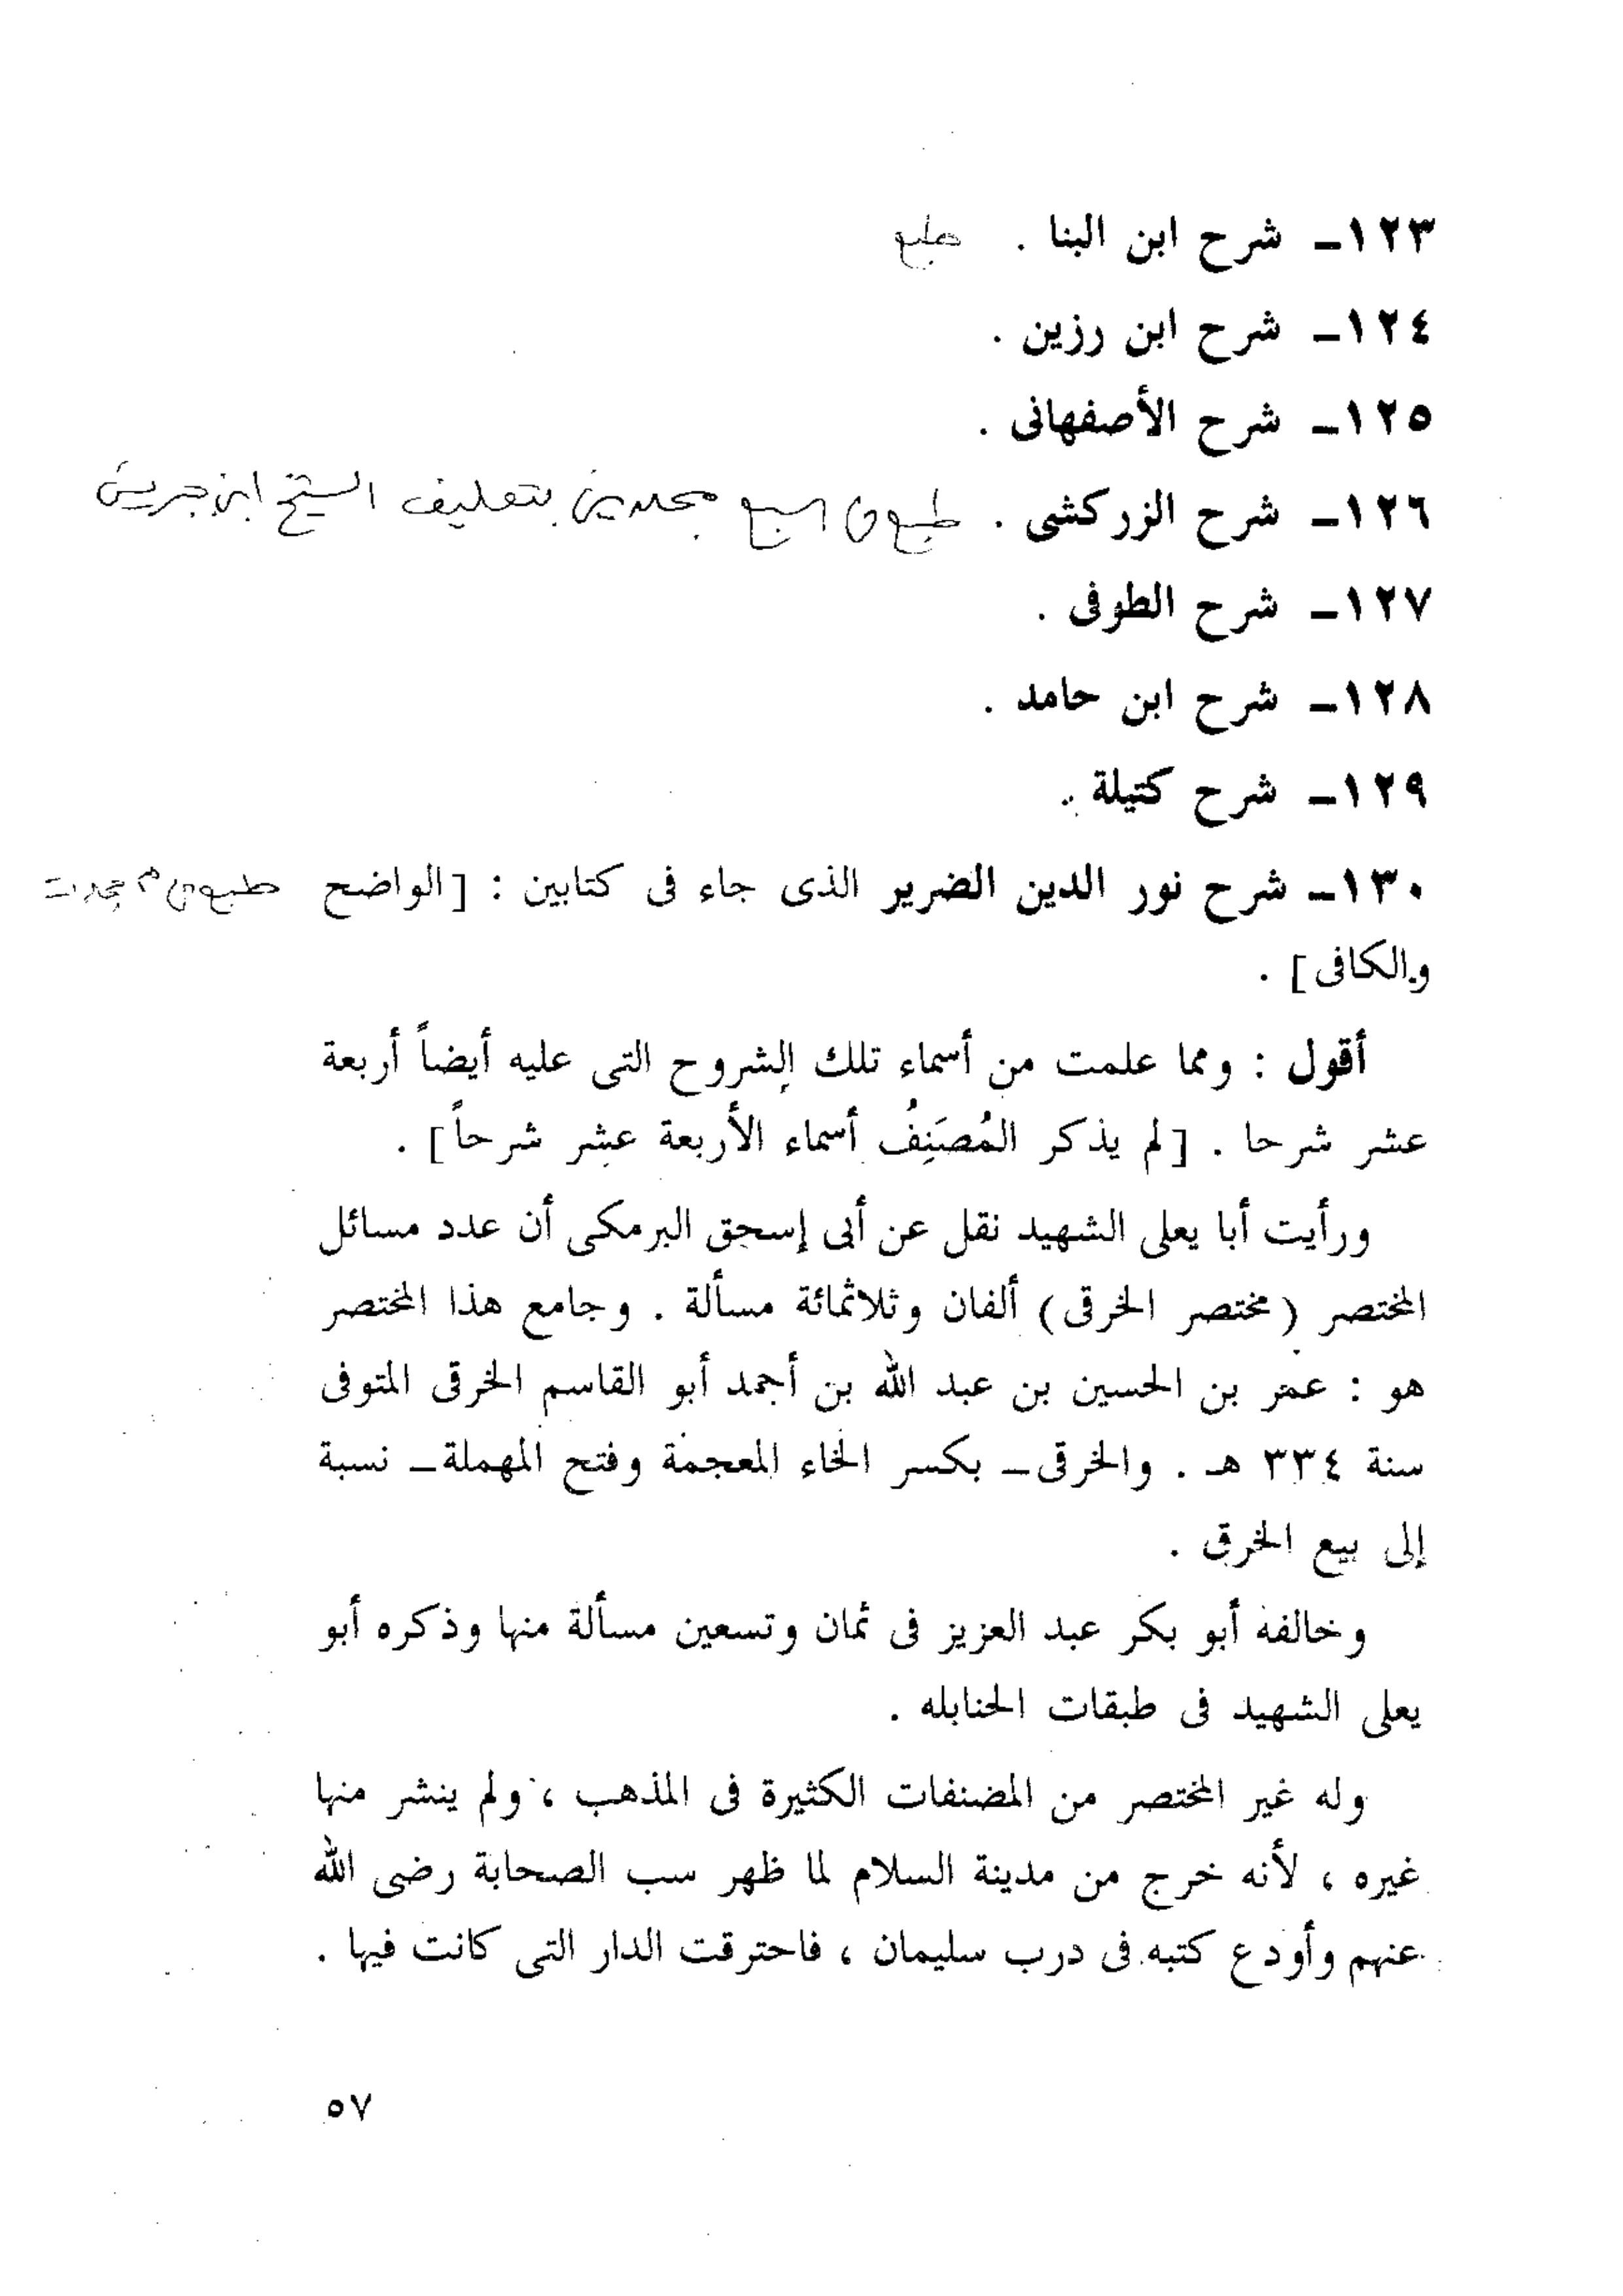 ١٢٣ـ شرح ابن البنا . طبع
١٢٤ـ شرح ابن رزين .
١٢٥ـ شرح الأصفهانى .
١٢٦ـ شرح الزركشى . طبع فى سبع مجلدين بتعليق الشيخ ابن جبرين
١٢٧ـ شرح الطوفى .
١٢٨ـ شرح ابن حامد .
١٢٩ـ شرح كتيلة .
١٣٠ـ شرح نور الدين الضرير الذى جاء فى كتابين : [الواضح طبع فى مجلدات
والكافى] .
أقول : ومما علمت من أسماء تلك الشروح التى عليه أيضاً أربعة
عشر شرحا . [لم يذكر المُصَنِفُ أسماء الأربعة عشر شرحاً] .
ورأيت أبا يعلى الشهيد نقل عن أبى إسحق البرمكى أن عدد مسائل
المختصر (مختصر الخرقى) ألفان وثلاثمائة مسألة . وجامع هذا المختصر
هو : عمر بن الحسين بن عبد الله بن أحمد أبو القاسم الخرقى المتوفى
سنة ٣٣٤ هـ . والخرقى ـ بكسر الخاء المعجمة وفتح المهملة ـ نسبة
إلى بيع الخرق .
وخالفه أبو بكر عبد العزيز فى ثمان وتسعين مسألة منها وذكره أبو
يعلى الشهيد فى طبقات الحنابله .
وله غير المختصر من المصنفات الكثيرة فى المذهب ، ولم ينشر منها
غيره ، لأنه خرج من مدينة السلام لما ظهر سب الصحابة رضى الله
عنهم وأودع كتبه فى درب سليمان ، فاحترقت الدار التى كانت فيها .
٥٧